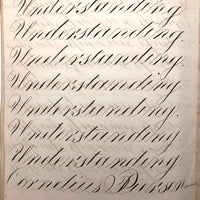 Understanding.
Understanding.
Understanding.
Understanding.
Understanding.
Understanding.
Understanding.
Cornelius Pierson